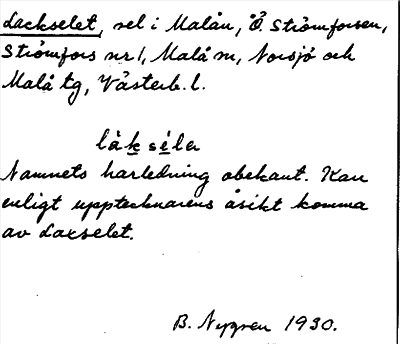 Lackselet, sel i Malån, Ö. Strömforsen,
Strömfors nr 1, Malå sn, Norsjö och
Malå tg, Västerb. l.
làksélęt
Namnets härledning obekant. Kan
enligt upptecknarens åsikt komma
av Laxselet.
B. Nygren 1930.